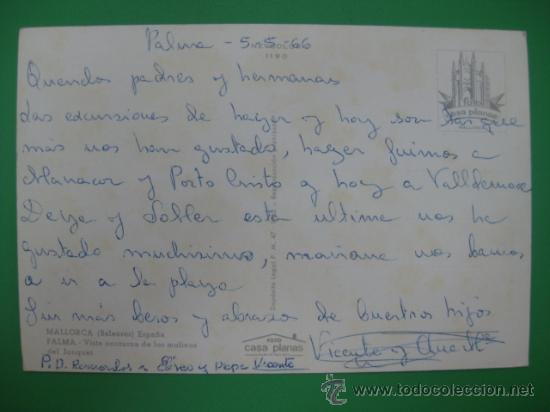 Palma - 5-5-66
1190
Queridos padres y hermanas
las excursiones de hayer y hoy son las que
más nos han gustado, hayer fuimos a
Manacor y Porto Cristo y hoy a Valldemosa
Deya y Soller esta ultima nos ha
gustado muchisimo, mañana nos bamos
a ir a la playa
Sin más besos y abrazos de buestros hijos
Vicente y
P.D. Recuerdos a y Papa Vicente
MALLORCA (Baleares) España
PALMA - Vista nocturna de los molinos
del Jonquet
casa planas
casa planas
Depósito Legal P. M. 47
todocoleccion.net